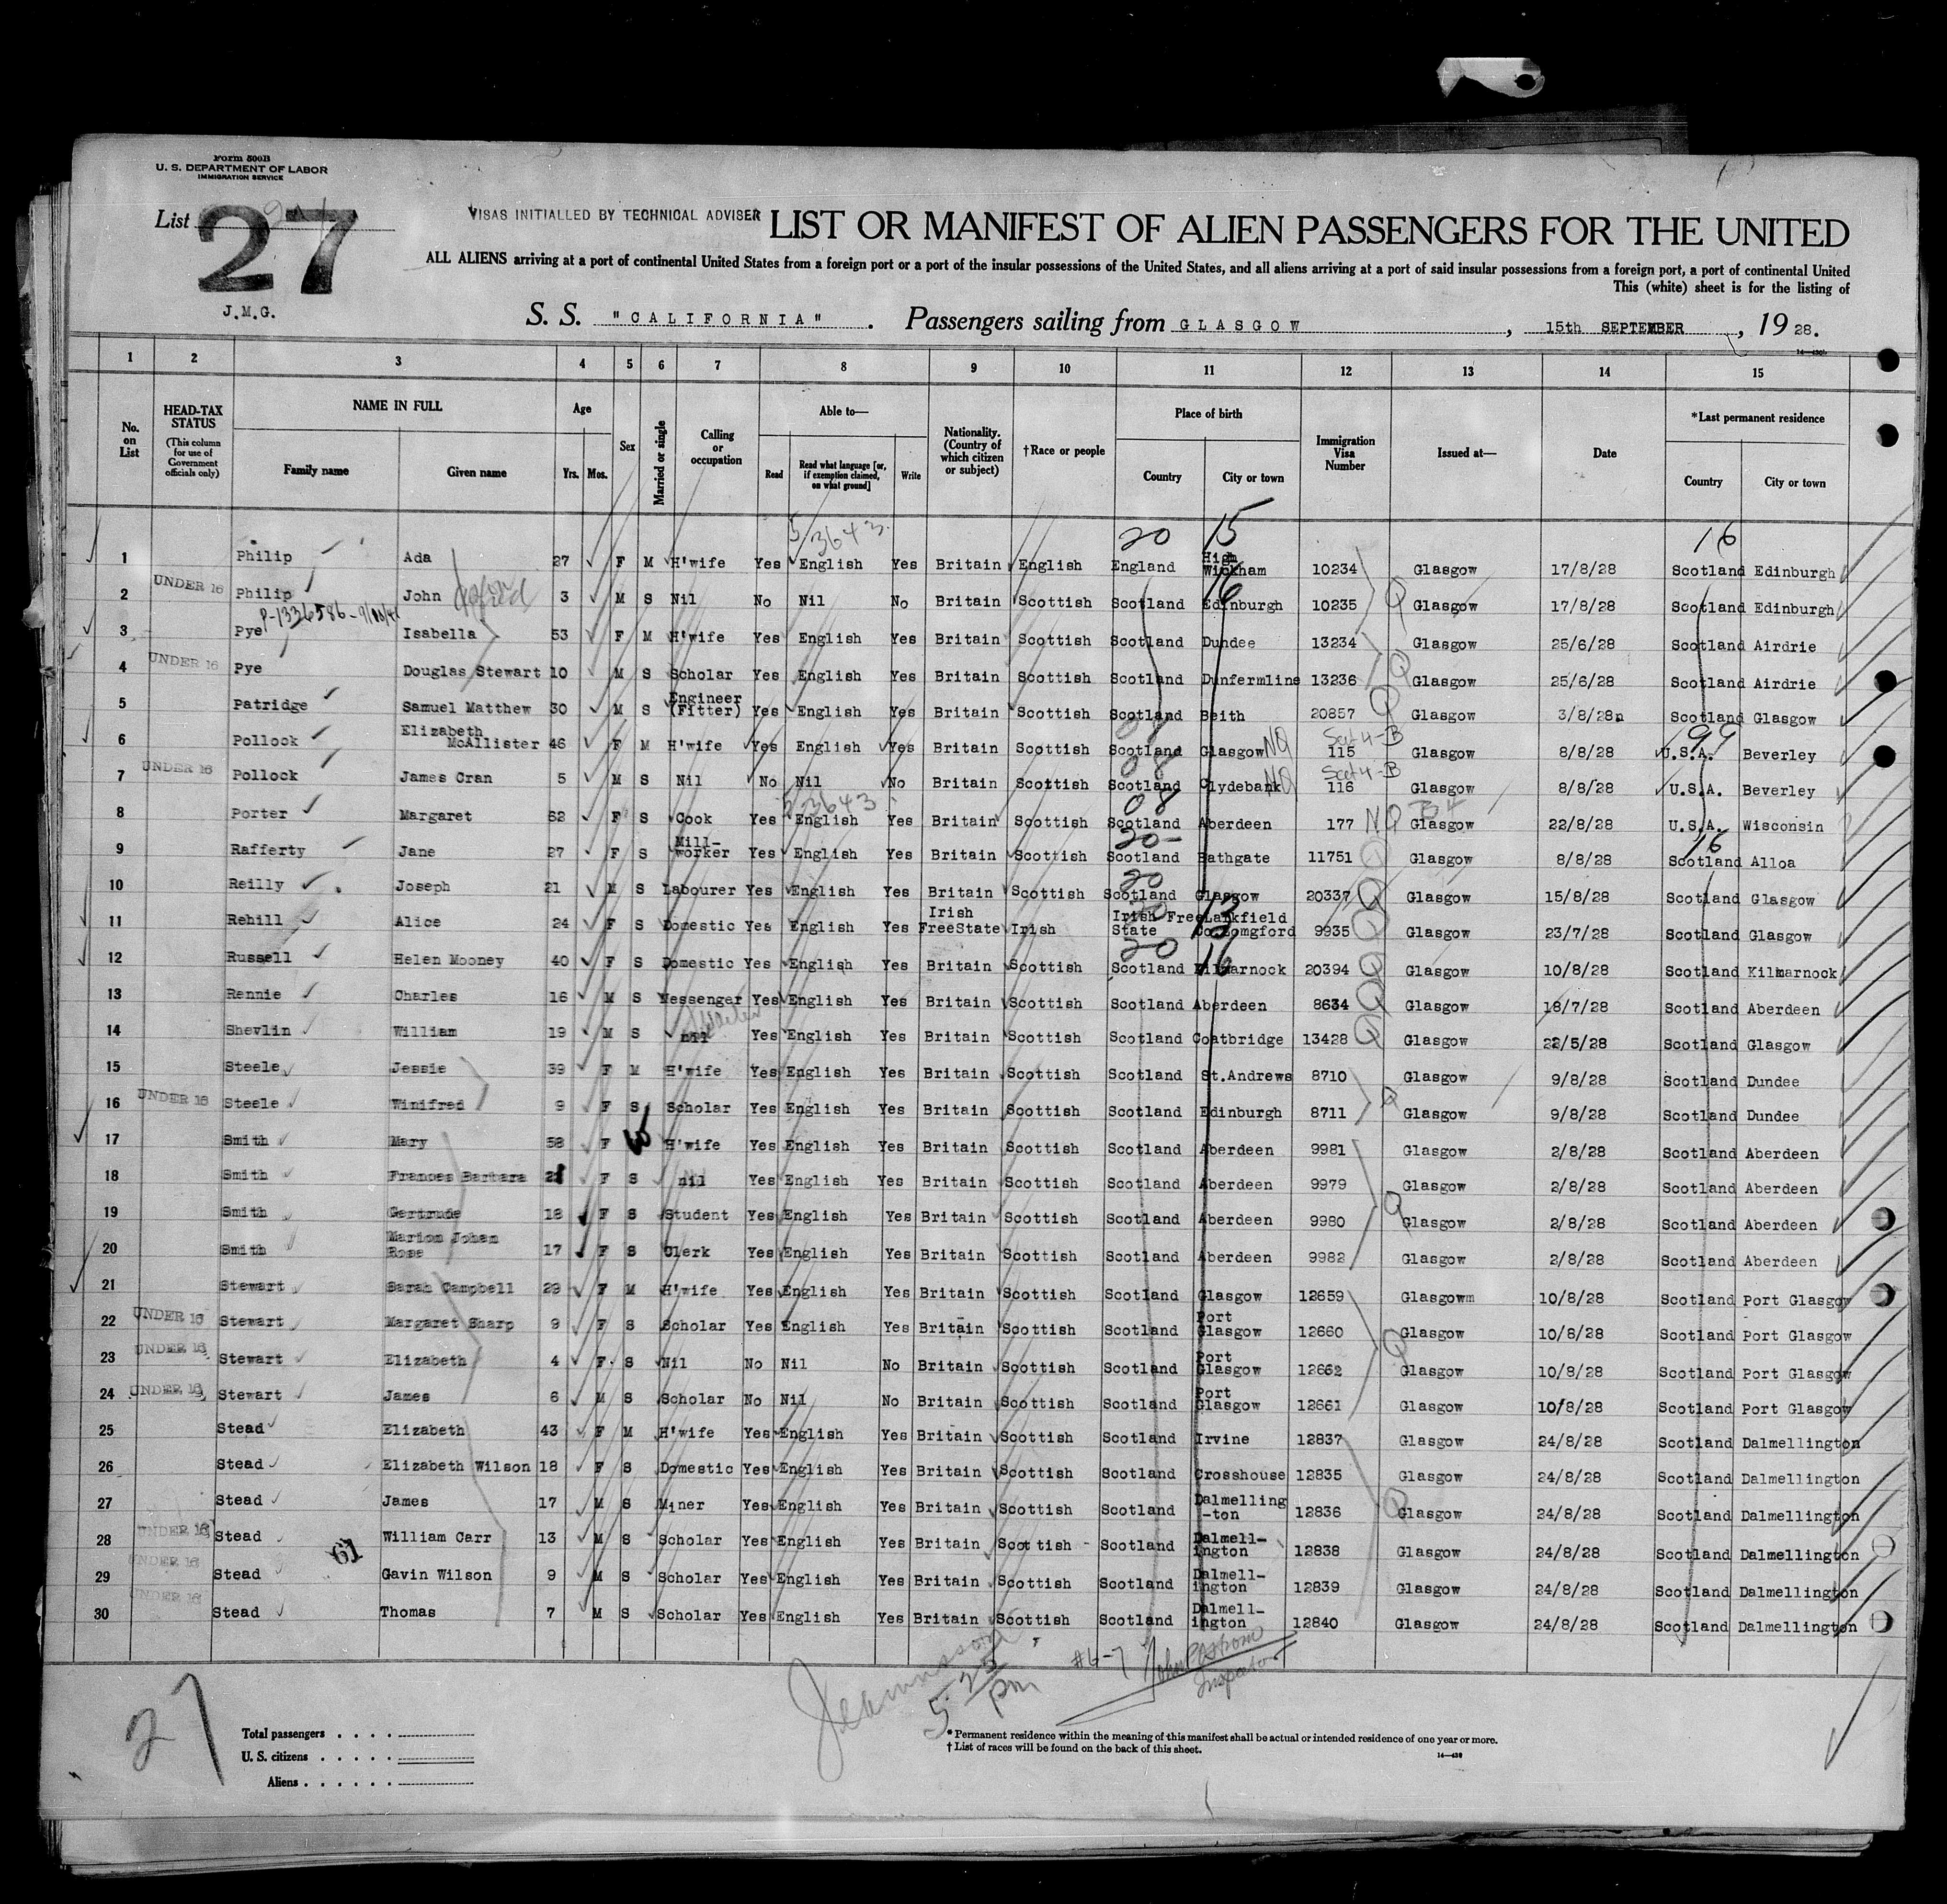 Form 500B
U. S. DEPARTMENT OF LABOR
IMMIGRATION SERVICE
List 27
J.M.G.
VISAS INITIALLED BY TECHNICAL ADVISER
LIST OR MANIFEST OF ALIEN PASSENGERS FOR THE UNITED
ALL ALIENS arriving at a port of continental United States from a foreign port or a port of the insular possessions of the United States, and all aliens arriving at a port of said insular possessions from a foreign port, a port of continental United
This (white) sheet is for the listing of
S. S. "CALIFORNIA". Passengers sailing from GLASGOW, 15th SEPTEMBER, 1928.
1 2 3 4 5 6 7 8 9 10 11 12 13 14 15
No. on List
HEAD-TAX STATUS
(This column for use of Government officials only)
NAME IN FULL
Family name Given name
Age
Yrs. Mos.
Sex
Married or single
Calling or occupation
Able to—
Read
Read what language [or, if exemption claimed, on what ground]
Write
Nationality. (Country of which citizen or subject)
†Race or people
Place of birth
Country City or town
Immigration Visa Number
Issued at—
Date
*Last permanent residence
Country City or town
5/3643 20 15 16
1 Philip Ada 27 F M H'wife Yes English Yes Britain English England High Wickham 10234 Glasgow 17/8/28 Scotland Edinburgh
2 UNDER 16 Philip John 3 M S Nil No Nil No Britain Scottish Scotland Edinburgh 10235 Glasgow 17/8/28 Scotland Edinburgh
3 Pye Isabella 53 F M H'wife Yes English Yes Britain Scottish Scotland Dundee 13234 Glasgow 25/6/28 Scotland Airdrie
4 UNDER 16 Pye Douglas Stewart 10 M S Scholar Yes English Yes Britain Scottish Scotland Dunfermline 13236 Glasgow 25/6/28 Scotland Airdrie
5 Patridge Samuel Matthew 30 M S Engineer (Fitter) Yes English Yes Britain Scottish Scotland Beith 20857 Glasgow 3/8/28 Scotland Glasgow
6 Pollock Elizabeth McAllister 46 F M H'wife Yes English Yes Britain Scottish Scotland Glasgow NQ Sect 4-B 115 Glasgow 8/8/28 U.S.A. Beverley
7 UNDER 16 Pollock James Cran 5 M S Nil No Nil No Britain Scottish Scotland Clydebank NQ Sect 4-B 116 Glasgow 8/8/28 U.S.A. Beverley
8 Porter Margaret 62 F S Cook Yes English Yes Britain Scottish Scotland Aberdeen 177 NQ Glasgow 22/8/28 U.S.A. Wisconsin
9 Rafferty Jane 27 F S Mill-worker Yes English Yes Britain Scottish Scotland Bathgate 11751 Glasgow 8/8/28 Scotland Alloa
10 Reilly Joseph 21 M S Labourer Yes English Yes Britain Scottish Scotland Glasgow 20337 Q Glasgow 15/8/28 Scotland Glasgow
11 Rehill Alice 24 F S Domestic Yes English Yes Irish FreeState Irish Irish Free State Lankfield Co.Longford 9935 Glasgow 23/7/28 Scotland Glasgow
12 Russell Helen Mooney 40 F S Domestic Yes English Yes Britain Scottish Scotland Kilmarnock 20394 Q Glasgow 10/8/28 Scotland Kilmarnock
13 Rennie Charles 16 M S Messenger Yes English Yes Britain Scottish Scotland Aberdeen 8634 Q Glasgow 18/7/28 Scotland Aberdeen
14 Shevlin William 19 M S nil Yes English Yes Britain Scottish Scotland Coatbridge 13428 Q Glasgow 22/5/28 Scotland Glasgow
15 Steele Jessie 39 F M H'wife Yes English Yes Britain Scottish Scotland St.Andrews 8710 Glasgow 9/8/28 Scotland Dundee
16 UNDER 16 Steele Winifred 9 F S Scholar Yes English Yes Britain Scottish Scotland Edinburgh 8711 Glasgow 9/8/28 Scotland Dundee
17 Smith Mary 58 F W H'wife Yes English Yes Britain Scottish Scotland Aberdeen 9981 Glasgow 2/8/28 Scotland Aberdeen
18 Smith Frances Barbara 21 F S nil Yes English Yes Britain Scottish Scotland Aberdeen 9979 Glasgow 2/8/28 Scotland Aberdeen
19 Smith Gertrude 18 F S Student Yes English Yes Britain Scottish Scotland Aberdeen 9980 Glasgow 2/8/28 Scotland Aberdeen
20 Smith Marion Johan Rose 17 F S Clerk Yes English Yes Britain Scottish Scotland Aberdeen 9982 Glasgow 2/8/28 Scotland Aberdeen
21 Stewart Sarah Campbell 29 F M H'wife Yes English Yes Britain Scottish Scotland Glasgow 12659 Glasgowm 10/8/28 Scotland Port Glasgow
22 UNDER 16 Stewart Margaret Sharp 9 F S Scholar Yes English Yes Britain Scottish Scotland Port Glasgow 12660 Glasgow 10/8/28 Scotland Port Glasgow
23 UNDER 16 Stewart Elizabeth 4 F S Nil No Nil No Britain Scottish Scotland Port Glasgow 12662 Glasgow 10/8/28 Scotland Port Glasgow
24 UNDER 16 Stewart James 6 M S Scholar No Nil No Britain Scottish Scotland Port Glasgow 12661 Glasgow 10/8/28 Scotland Port Glasgow
25 Stead Elizabeth 43 F M H'wife Yes English Yes Britain Scottish Scotland Irvine 12837 Glasgow 24/8/28 Scotland Dalmellington
26 Stead Elizabeth Wilson 18 F S Domestic Yes English Yes Britain Scottish Scotland Crosshouse 12835 Glasgow 24/8/28 Scotland Dalmellington
27 Stead James 17 M S Miner Yes English Yes Britain Scottish Scotland Dalmelling-ton 12836 Glasgow 24/8/28 Scotland Dalmellington
28 UNDER 16 Stead William Carr 13 M S Scholar Yes English Yes Britain Scottish Scotland Dalmell-ington 12838 Glasgow 24/8/28 Scotland Dalmellington
61
29 UNDER 16 Stead Gavin Wilson 9 M S Scholar Yes English Yes Britain Scottish Scotland Dalmell-ington 12839 Glasgow 24/8/28 Scotland Dalmellington
30 UNDER 16 Stead Thomas 7 M S Scholar Yes English Yes Britain Scottish Scotland Dalmell-ington 12840 Glasgow 24/8/28 Scotland Dalmellington
#6-7
Inspector
pm
27
Total passengers
U. S. citizens
Aliens
* Permanent residence within the meaning of this manifest shall be actual or intended residence of one year or more.
† List of races will be found on the back of this sheet.